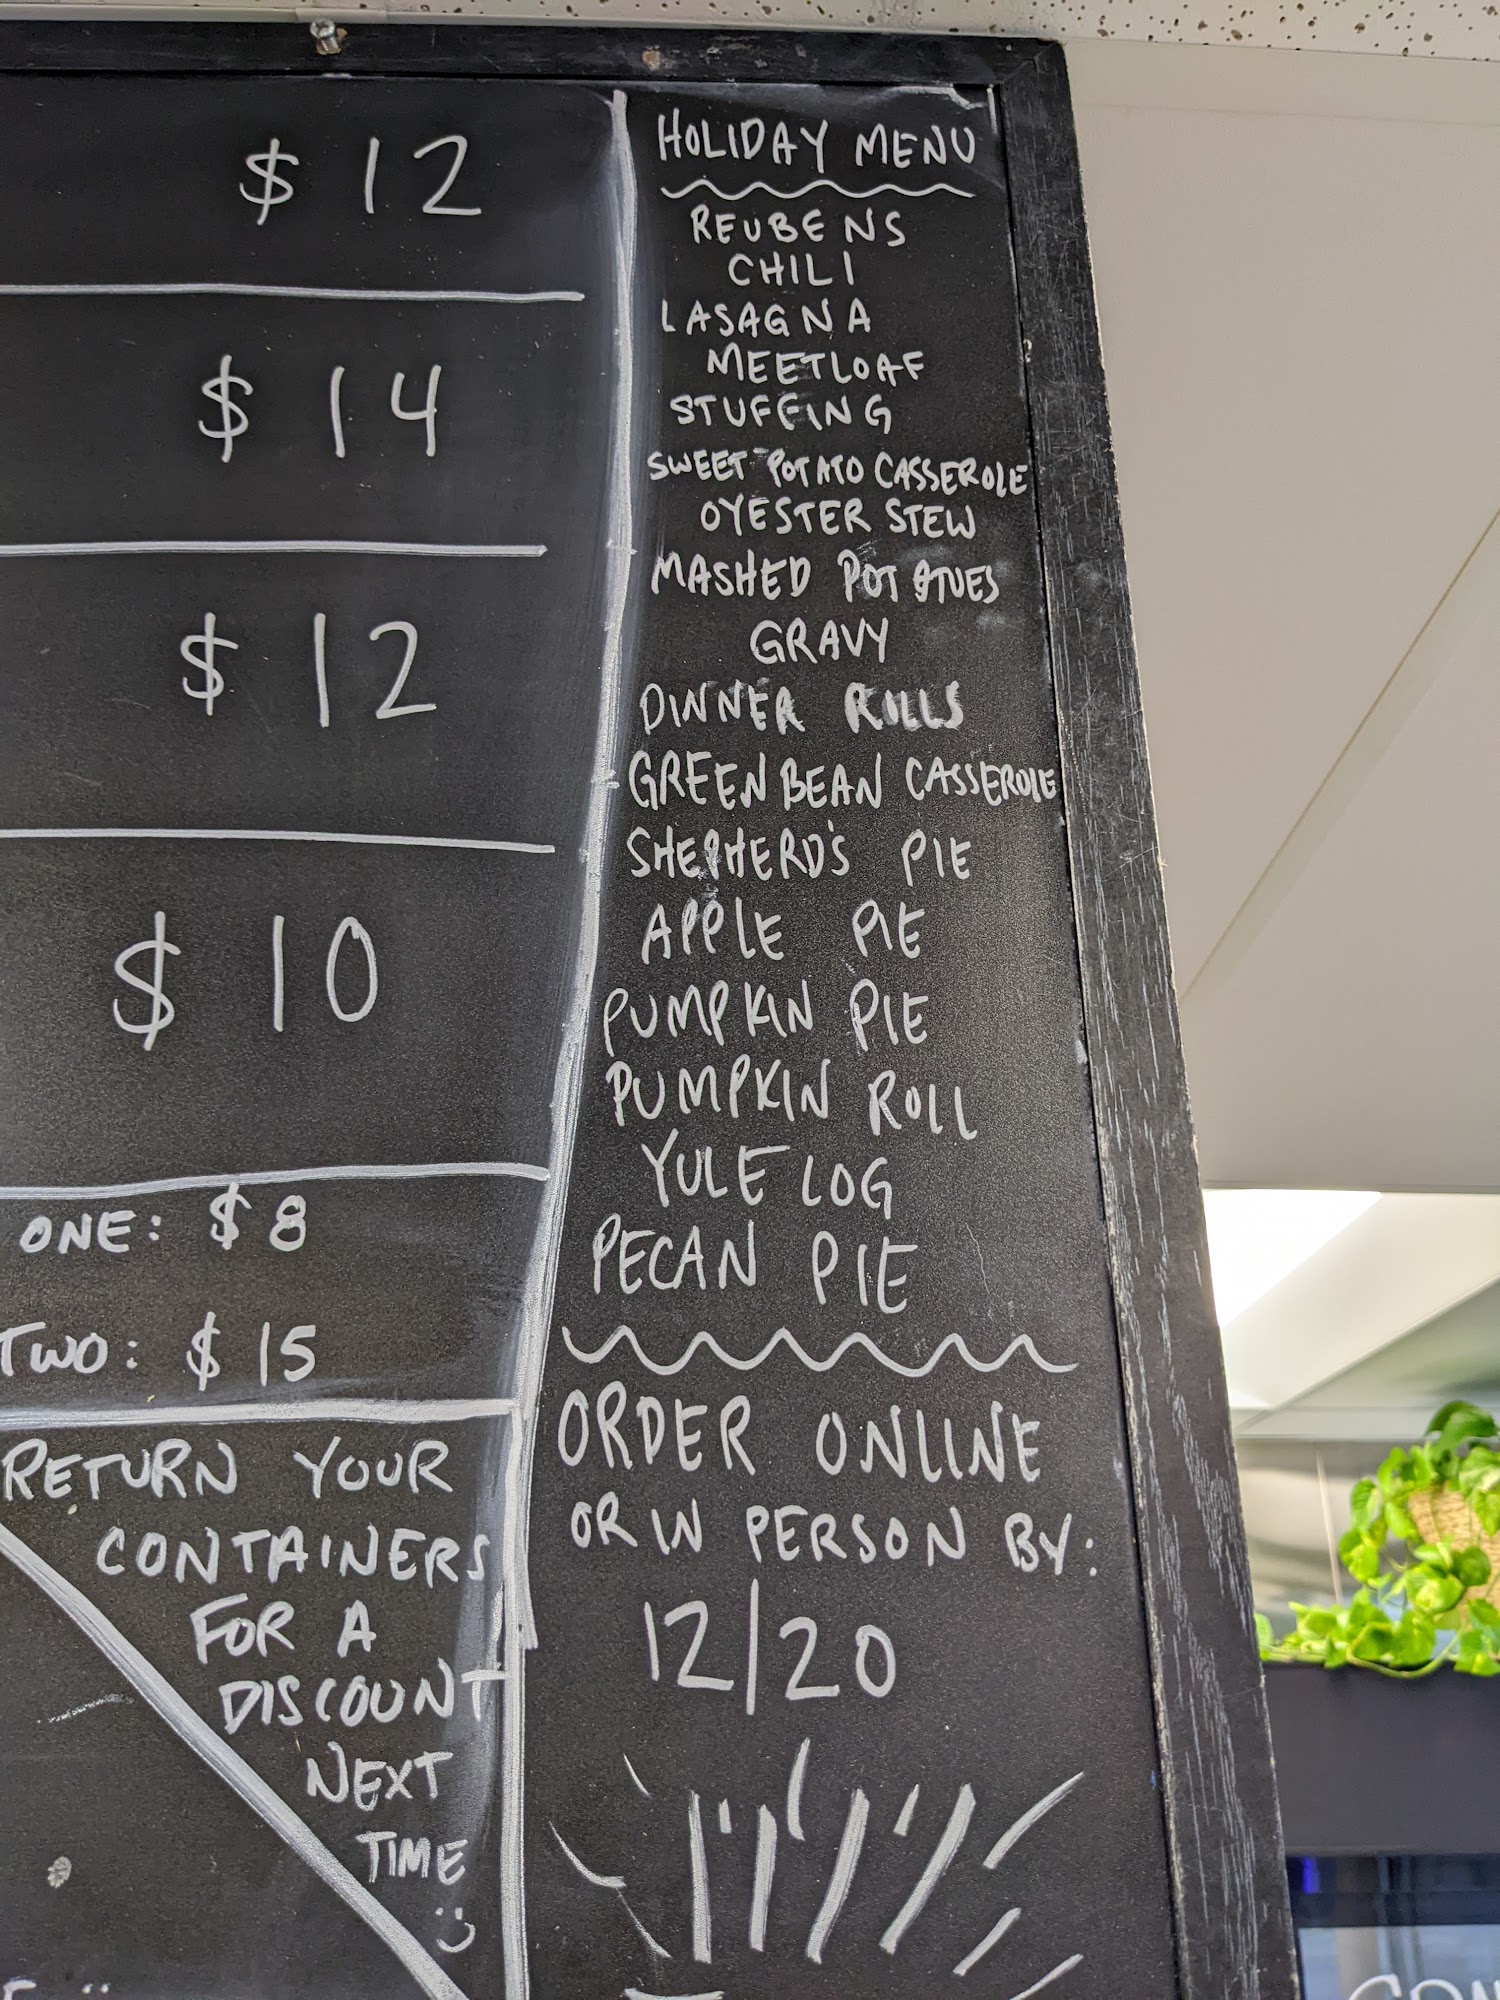 $ 12
$ 14
$ 12
$ 10
ONE: $ 8
TWO: $ 15
RETURN YOUR
CONTAINERS
FOR A
DISCOUNT
NEXT
TIME
:)
HOLIDAY MENU
REUBENS
CHILI
LASAGNA
MEETLOAF
STUFFING
SWEET POTATO CASSEROLE
OYESTER STEW
MASHED POTATOES
GRAVY
DINNER ROLLS
GREEN BEAN CASSEROLE
SHEPHERD'S PIE
APPLE PIE
PUMPKIN PIE
PUMPKIN ROLL
YULE LOG
PECAN PIE
ORDER ONLINE
OR IN PERSON BY:
12/20